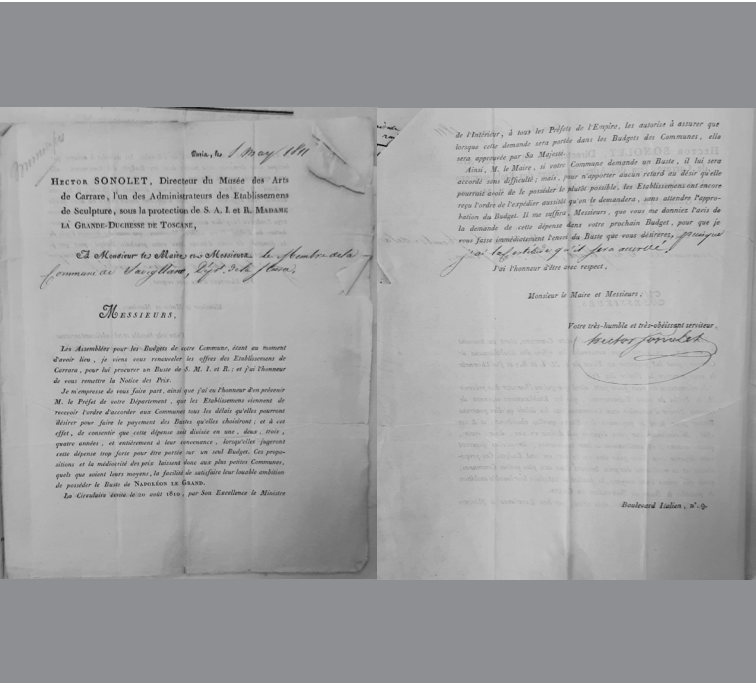 Paris, le 1 May 1811
HECTOR SONOLET, Directeur du Musée des Arts
de Carrare, l'un des Administrateurs des Etablissemens
de Sculpture, sous la protection de S. A. I. et R. MADAME
LA GRANDE-DUCHESSE DE TOSCANE,
A Monsieur le Maire et Messieurs le Membre de la
Commune de Savigliano, Dépt. de la Stura.
MESSIEURS,
Les Assemblées pour les Budgets de votre Commune, étant au moment
d'avoir lieu, je viens vous renouveler les offres des Etablissemens de
Carrare, pour lui procurer un Buste de S. M. I. et R.; et j'ai l'honneur
de vous remettre la Notice des Prix.
Je m'empresse de vous faire part, ainsi que j'ai eu l'honneur d'en prévenir
M. le Préfet de votre Département, que les Etablissemens viennent de
recevoir l'ordre d'accorder aux Communes tous les délais qu'elles pourront
désirer pour faire le payement des Bustes qu'elles choisiront; et à cet
effet, de consentir que cette dépense soit divisée en une, deux, trois,
quatre années, et entièrement à leur convenance, lorsqu'elles jugeront
cette dépense trop forte pour être portée sur un seul Budget. Ces propo-
sitions et la médiocrité des prix laissent donc aux plus petites Communes,
quels que soient leurs moyens, la facilité de satisfaire leur louable ambition
de posséder le Buste de NAPOLÉON LE GRAND.
La Circulaire écrite le 20 août 1810, par Son Excellence le Ministre
de l'Intérieur, à tous les Préfets de l'Empire, les autorise à assurer que
lorsque cette demande sera portée dans les Budgets des Communes, elle
sera approuvée par Sa Majesté.
Ainsi, M. le Maire, si votre Commune demande un Buste, il lui sera
accordé sans difficulté; mais, pour n'apporter aucun retard au désir qu'elle
pourrait avoir de le posséder le plutôt possible, les Etablissemens ont encore
reçu l'ordre de l'expédier aussitôt qu'on le demandera, sans attendre l'appro-
bation du Budget. Il me suffira, Messieurs, que vous me donniez l'avis de
la demande de cette dépense dans votre prochain Budget, pour que je
vous fasse immédiatement l'envoi du Buste que vous désirerez, puisque
j'ai la certitude qu'il sera accordé.
J'ai l'honneur d'être avec respect,
Monsieur le Maire et Messieurs,
Votre très-humble et très-obéissant serviteur,
hector Sonolet
Boulevard Italien, N.°